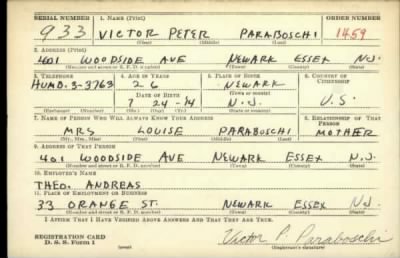 SERIAL NUMBER 1. NAME (Print) ORDER NUMBER
933 VICTOR PETER PARABOSCHI 1459
(First) (Middle) (Last)
2. ADDRESS (Print)
401 WOODSIDE AVE NEWARK ESSEX N.J.
(Number and street or R. F. D. number) (Town) (County) (State)
3. TELEPHONE 4. AGE IN YEARS 5. PLACE OF BIRTH 6. COUNTRY OF CITIZENSHIP
HUMB. 3-3763 26 NEWARK
DATE OF BIRTH (Town or county)
7 24 -14 N.J. U.S.
(Exchange) (Number) (Mo.) (Day) (Yr.) (State or country)
7. NAME OF PERSON WHO WILL ALWAYS KNOW YOUR ADDRESS 8. RELATIONSHIP OF THAT PERSON
MRS LOUISE PARABOSCHI MOTHER
(Mr., Mrs., Miss) (First) (Middle) (Last)
9. ADDRESS OF THAT PERSON
401 WOODSIDE AVE NEWARK ESSEX N.J.
(Number and street or R. F. D. number) (Town) (County) (State)
10. EMPLOYER'S NAME
THEO. ANDREAS
11. PLACE OF EMPLOYMENT OR BUSINESS
33 ORANGE ST. NEWARK ESSEX NJ
(Number and street or R. F. D. number) (Town) (County) (State)
I AFFIRM THAT I HAVE VERIFIED ABOVE ANSWERS AND THAT THEY ARE TRUE.
REGISTRATION CARD Victor P. Paraboschi
D. S. S. Form 1 (over) (Registrant's signature)